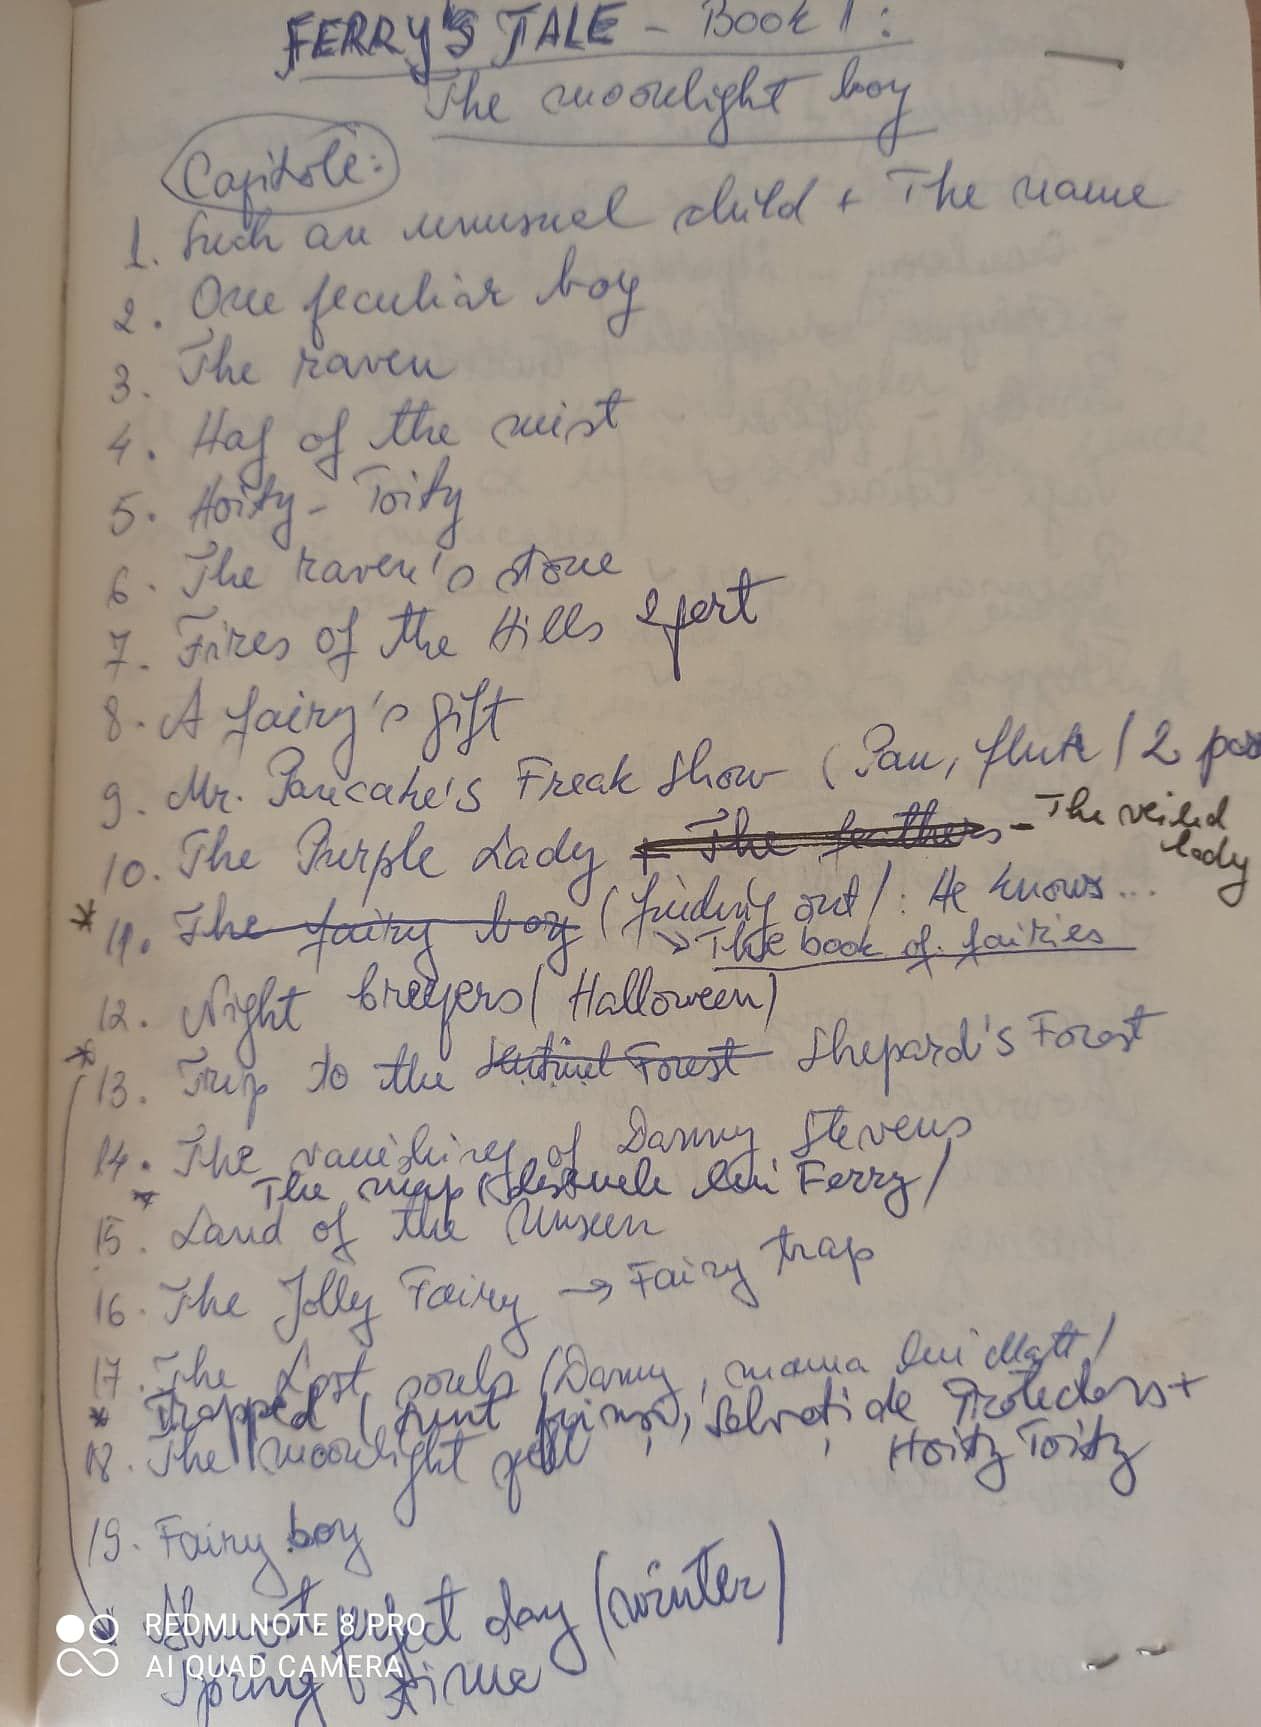 FERRY'S TALE - Book 1:
The moonlight boy
Capitole:
1. Such an unusual child + The name
2. One peculiar boy
3. The raven
4. Hag of the mist
5. Hoity-Toity
6. The raven's stone
7. Fires of the Hills 2 part
8. A fairy's gift
9. Mr. Pancake's Freak Show (Pan, flute / 2
10. The Purple Lady + The feathers - The veiled lady
* 11. The fairy boy (finding out/: He knows...
→ The book of fairies
12. Night (Halloween)
* 13. Trip to the Sentinel Forest Shepard's Forest
14. The vanishing of Danny Stevens
* The map ( lui Ferry/
15. Land of the Unseen
16. The Jolly Fairy → Fairy trap
17. The Lost souls (Danny, mama lui Matt/
* Trapped (sunt Protectors +
Hoity Toity
18. The moonlight
19. Fairy boy
Almost perfect day (winter)
Spring time
REDMI NOTE 8 PRO
AI QUAD CAMERA